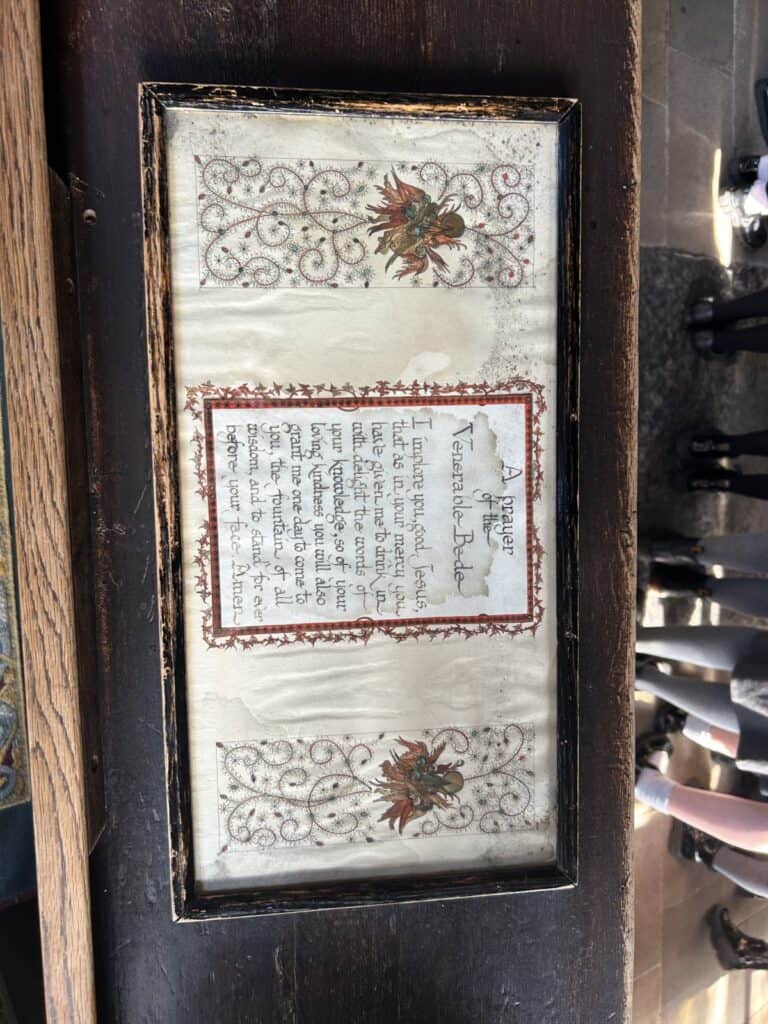 A prayer
of the
Venerable Bede
I implore you, good Jesus,
that as in your mercy you
have given me to drink in
with delight the words of
your knowledge, so of your
loving kindness you will also
grant me one day to come to
you, the fountain of all
wisdom, and to stand for ever
before your face Amen